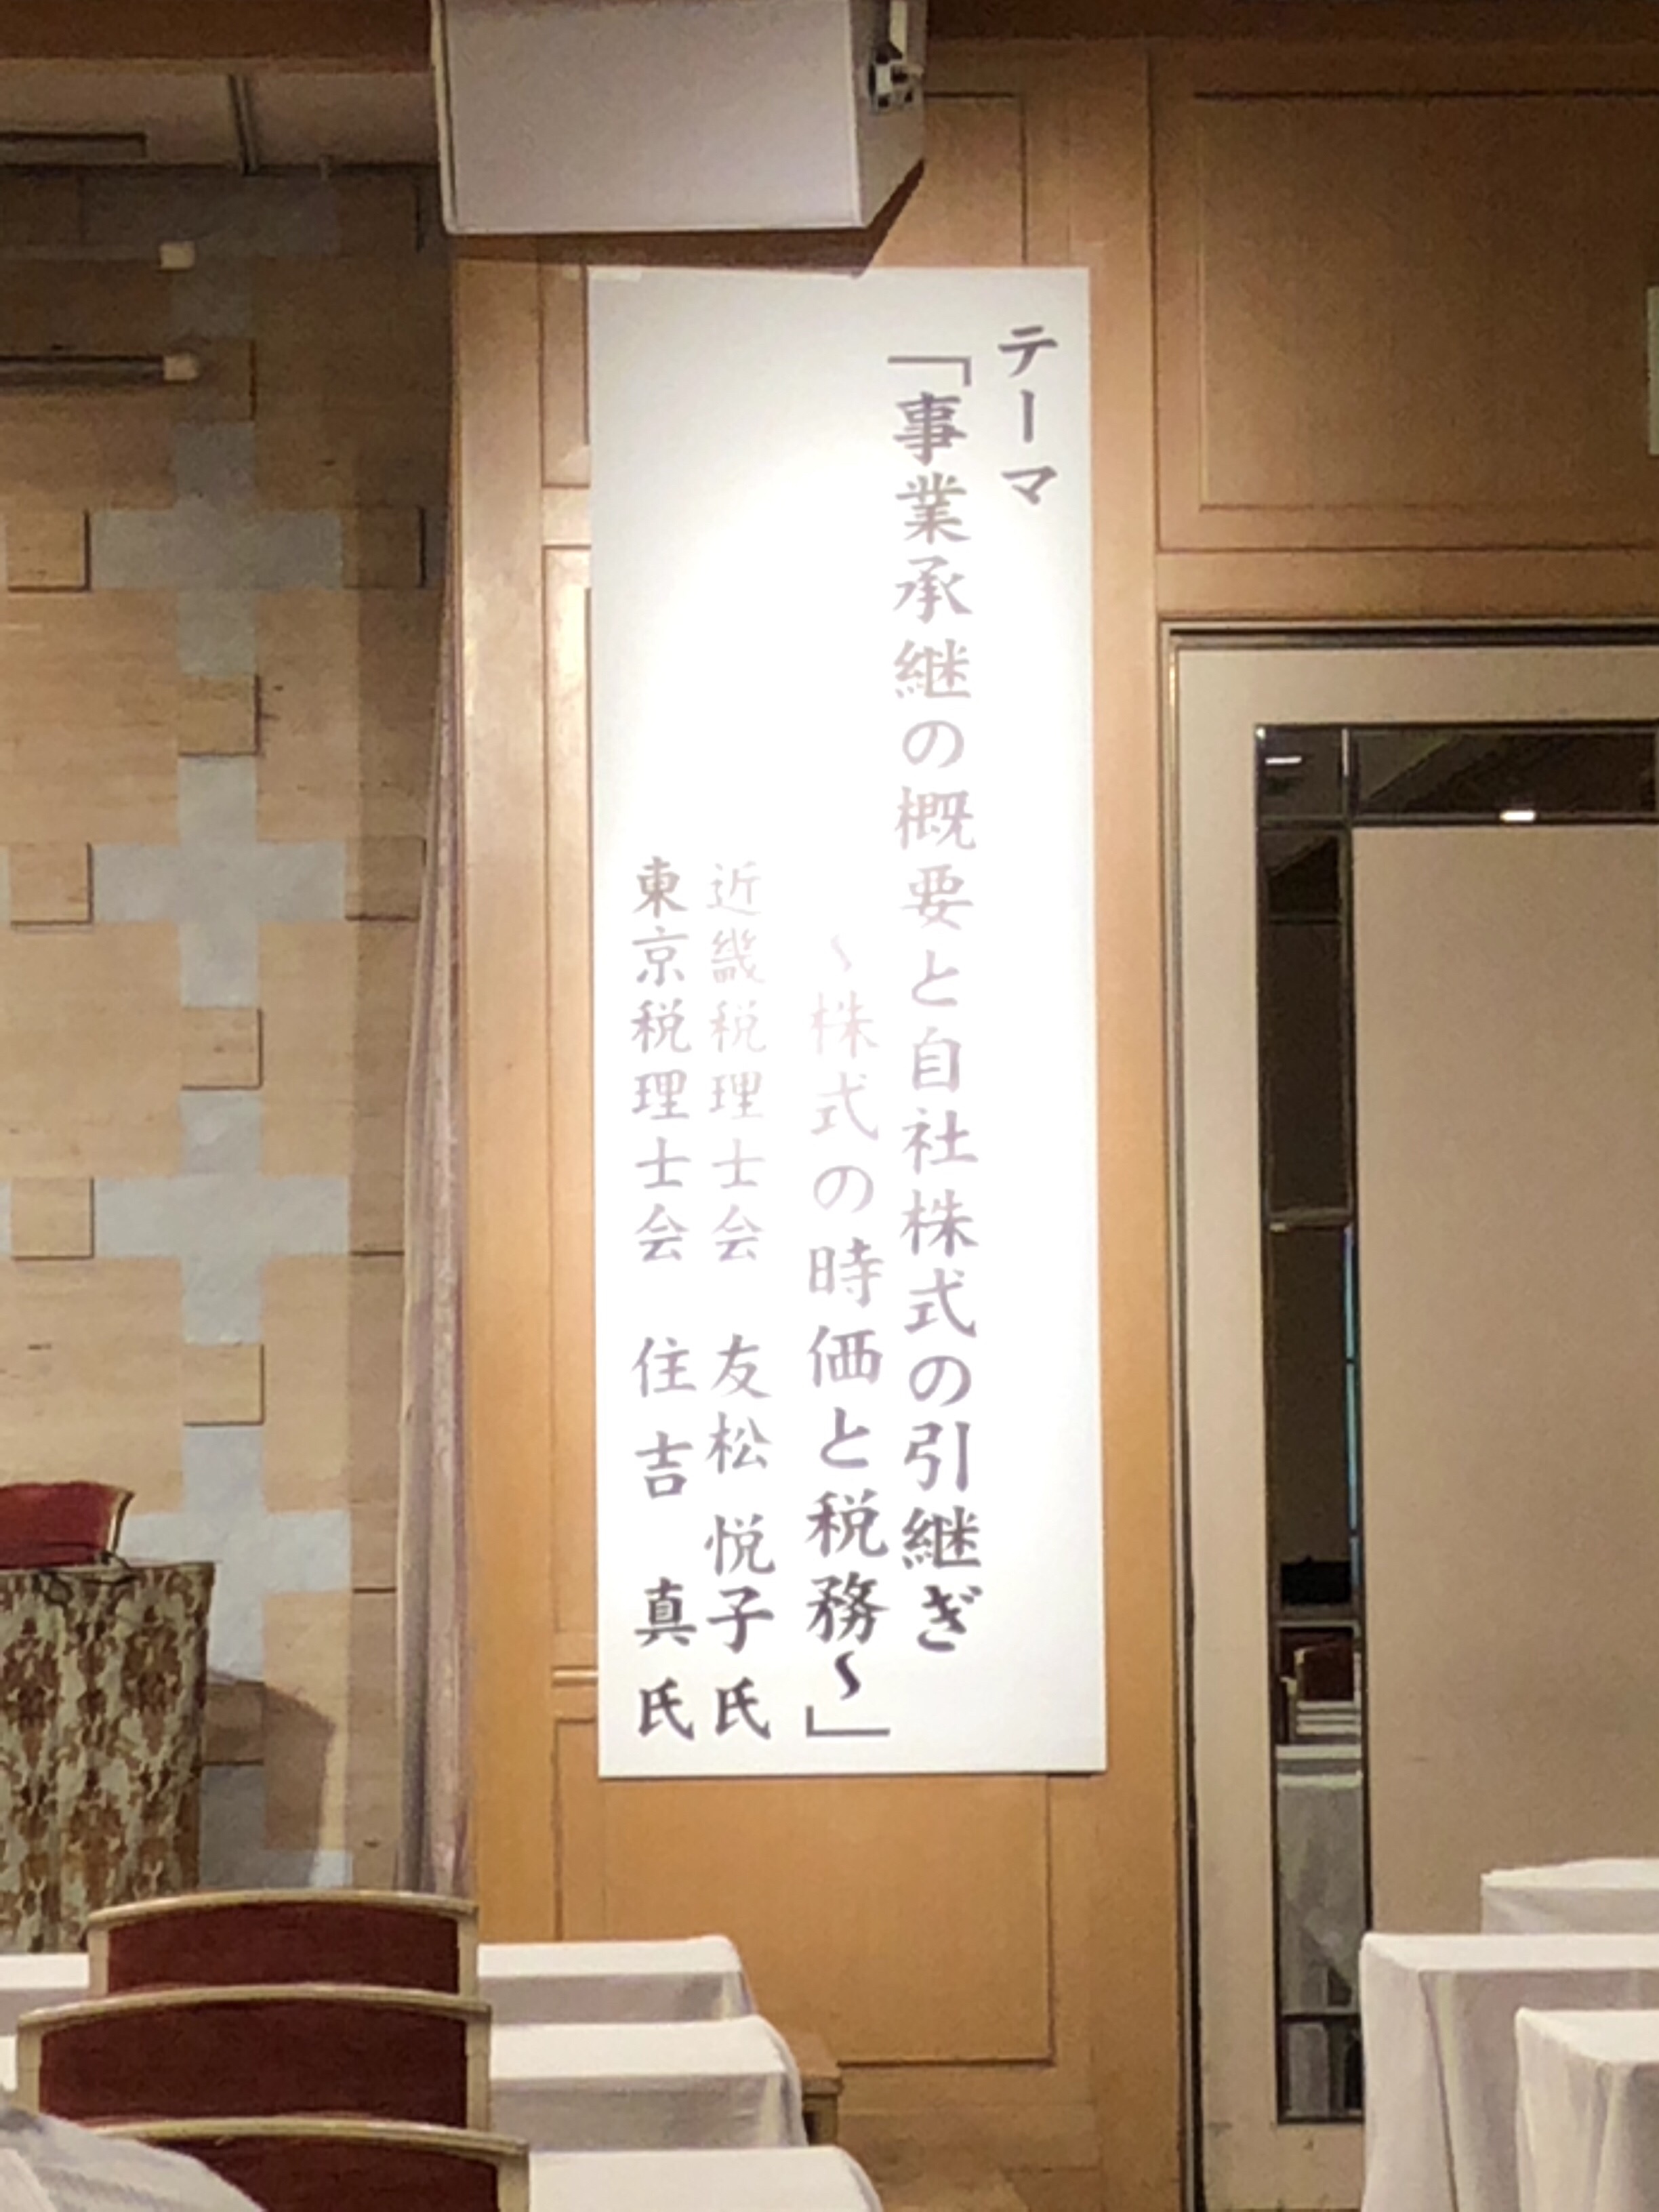 テーマ
「事業承継の概要と自社株式の引継ぎ
～株式の時価と税務～」
近畿税理士会 友松 悦子 氏
東京税理士会 住吉 真 氏